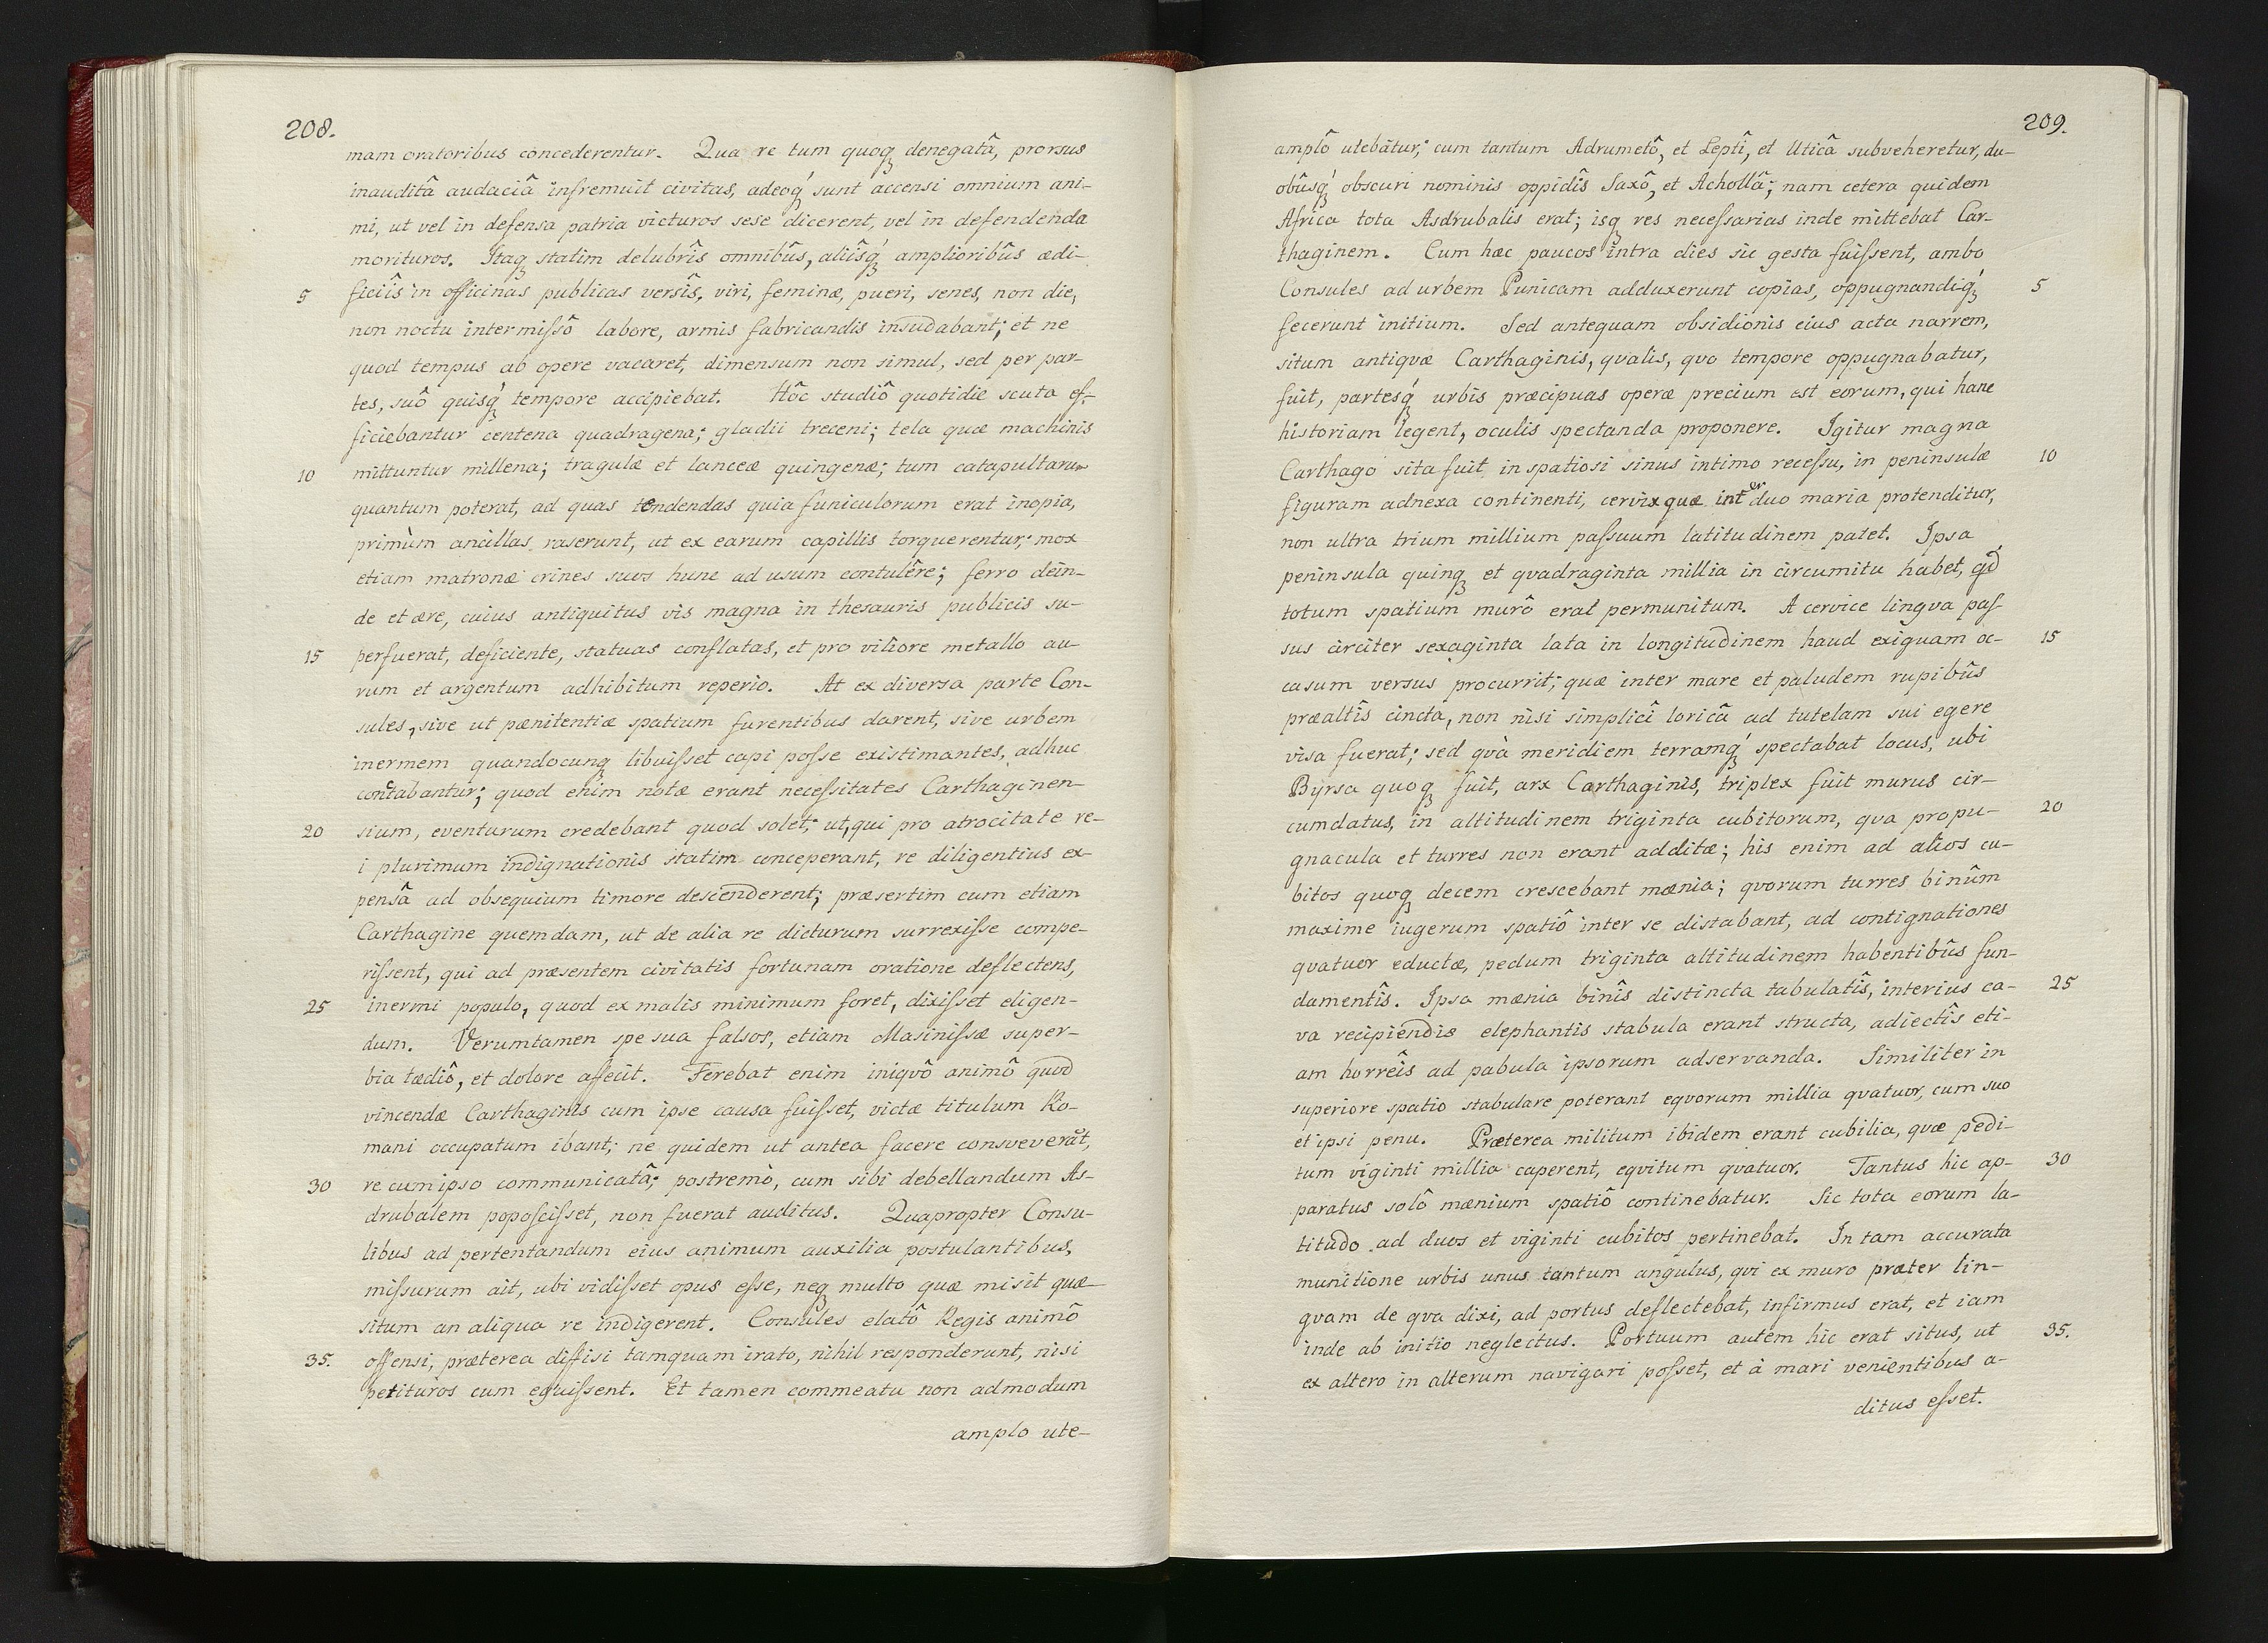 208.
mam oratoribus concederentur. Qua re tum quoq̨ denegatâ, prorsus
inauditâ audaciâ infremuit civitas, adeoq̨́ sunt accensi omnium ani-
mi, ut vel in defensa patria victuros sese dicerent, vel in defendenda
morituros. Itaq̨ statim delubrîs omnibûs, aliîsq̨́ amplioribûs ædi-
5 ficiîs in officinas publicas versîs, viri, feminæ, pueri, senes, non die,
non noctu intermiſsô labore, armis fabricandis insudabant; et ne
quod tempus ab opere vacaret, dimensum non simul, sed per par-
tes, suô quisq̨́ tempore accipiebat. Hôc studiô quotidie scuta ef-
ficiebantur centena quadragena; gladii treceni; tela quæ machinis
10 mittuntur millena; tragulæ et lanceæ quingenæ; tum catapultarum
quantum poterat, ad quas tendendas quia funiculorum erat inopia,
primùm ancillas raserunt, ut ex earum capillis torquerentur; mox
etiam matronæ crines suos hunc ad usum contulêre; ferro dein-
de et ære, cuius antiquitus vis magna in thesauris publicis su-
15 perfuerat, deficiente, statuas conflatas, et pro viliore metallo au-
rum et argentum adhibitum reperio. At ex diversa parte Con-
sules, sive ut pænitentiæ spatium furentibus darent, sive urbem
inermem quandocunq̨ libuiſset capi poſse existimantes, adhuc
contabantur; quod enim notæ erant neceſsitates Carthaginen-
20 sium, eventurum credebant quod solet; ut, qui pro atrocitate re-
i plurimum indignationis statim conceperant, re diligentius ex-
pensâ ad obsequium timore descenderent; præsertim cum etiam
Carthagine quemdam, ut de alia re dicturum surrexiſse compe-
riſsent, qui ad præsentem civitatis fortunam oratione deflectens,
25 inermi populo, quod ex malis minimum foret, dixiſset eligen-
dum. Verumtamen spe sua falsos, etiam Masiniſsæ super-
bia tædiô, et dolore affecit. Ferebat enim iniqvô animô quod
vincendæ Carthaginis cum ipse causa fuiſset, victæ titulum Ro-
mani occupatum ibant; ne quidem ut antea facere consveverat,
30 re cum ipso communicatâ; postremò, cum sibi debellandum As-
drubalem popoſciſset, non fuerat auditus. Quapropter Consu-
libus ad pertentandum eius animum auxilia postulantibus,
miſsurum ait, ubi vidiſset opus eſse, neq̨ multo quæ misit quæ-
situm an aliqua re indigerent. Consules elatô Regis animô
35. offensi, præterea diffisi tamquam irato, nihil responderunt, nisi
petituros cum eguiſsent. Et tamen commeatu non admodum
amplo ute-
209.
amplô utebatur; cum tantum Adrumetô, et Leptî, et Uticâ subveheretur, du-
obûsq̨́ obscuri nominis oppidîs Saxô, et Achollâ; nam cetera quidem
Africa tota Asdrubalis erat; isq̨ res neceſsarias inde mittebat Car-
thaginem. Cum hæc paucos intra dies sic gesta fuiſsent, ambo
Consules ad urbem Punicam adduxerunt copias, oppugnandiq̨́ 5
fecerunt initium. Sed antequam obsidionis eius acta narrem,
situm antiqvæ Carthaginis, qvalis, qvo tempore oppugnabatur,
fuit, partesq̨́ urbis præcipuas operæ precium est eorum, qui hanc
historiam legent, oculis spectanda proponere. Igitur magna
Carthago sita fuit in spatiosi sinus intimo receſsu, in peninsulæ 10
figuram adnexa continenti, cervix quæ inter duo maria protenditur,
non ultra trium millium paſsuum latitudinem patet. Ipsa
peninsula quinq̨ et qvadraginta millia in circumitu habet, qd
totum spatium murô erat permunitum. A cervice lingva paſ-
sus circiter sexaginta lata in longitudinem haud exiguam oc- 15
casum versus procurrit; quæ inter mare et paludem rupibûs
præaltîs cincta, non nisi simplicî loricâ ad tutelam sui egere
visa fuerat; sed qvà meridiem terramq̨́ spectabat locus, ubi
Byrsa quoq̨ fuit, arx Carthaginis, triplex fuit murus cir-
cumdatus, in altitudinem triginta cubitorum, qva propu- 20
gnacula et turres non erant additæ; his enim ad alios cu-
bitos quoq̨ decem crescebant mænia; qvorum turres binûm
maxime iugerum spatiô inter se distabant, ad contignationes
qvatuor eductæ, pedum triginta altitudinem habentibûs fun-
damentîs. Ipsa mænia binîs distincta tabulatîs, interius ca- 25
va recipiendis elephantis stabula erant structa, adiectîs eti-
am horreîs ad pabula ipsorum adservanda. Similiter in
superiore spatio stabulare poterant eqvorum millia qvatuor, cum suo
et ipsi penu. Præterea militum ibidem erant cubilia, qvæ pedi-
tum viginti millia caperent, eqvitum qvatuor. Tantus hic ap- 30
paratus solô mænium spatiô continebatur. Sic tota eorum la-
titudo ad duos et viginti cubitos pertinebat. In tam accurata
munitione urbis unus tantum angulus, qvi ex muro præter lin-
gvam de qva dixi, ad portus deflectebat, infirmus erat, et iam
inde ab initio neglectus. Portuum autem hic erat situs, ut 35.
ex altero in alterum navigari poſset, et à mari venientibus a-
ditus eſset.